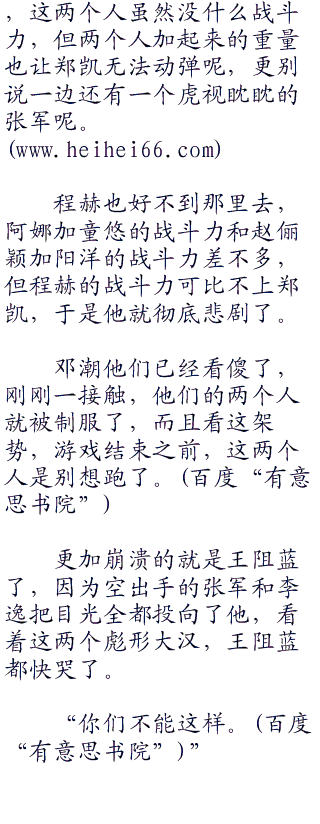 ，这两个人虽然没什么战斗
力，但两个人加起来的重量
也让郑凯无法动弹呢，更别
说一边还有一个虎视眈眈的
张军呢。
(www.heihei66.com)
程赫也好不到那里去，
阿娜加童悠的战斗力和赵俪
颖加阳洋的战斗力差不多，
但程赫的战斗力可比不上郑
凯，于是他就彻底悲剧了。
邓潮他们已经看傻了，
刚刚一接触，他们的两个人
就被制服了，而且看这架
势，游戏结束之前，这两个
人是别想跑了。(百度“有意
思书院”)
更加崩溃的就是王阻蓝
了，因为空出手的张军和李
逸把目光全都投向了他，看
着这两个彪形大汉，王阻蓝
都快哭了。
“你们不能这样。(百度
“有意思书院”)”